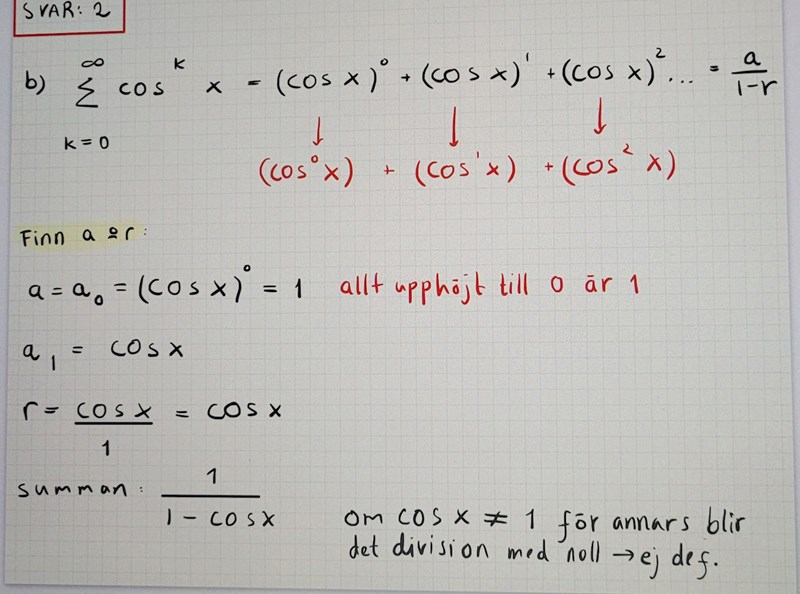 SVAR: 2
b) ∞ Σ k=0 cos^k x = (cos x)^0 + (cos x)^1 + (cos x)^2 ... = a/(1-r)
(cos^0 x) + (cos^1 x) + (cos^2 x)
Finn a & r:
a = a_0 = (cos x)^0 = 1 allt upphöjt till 0 är 1
a_1 = cos x
r = cos x / 1 = cos x
summan: 1 / (1 - cos x)
om cos x ≠ 1 för annars blir
det division med noll → ej def.